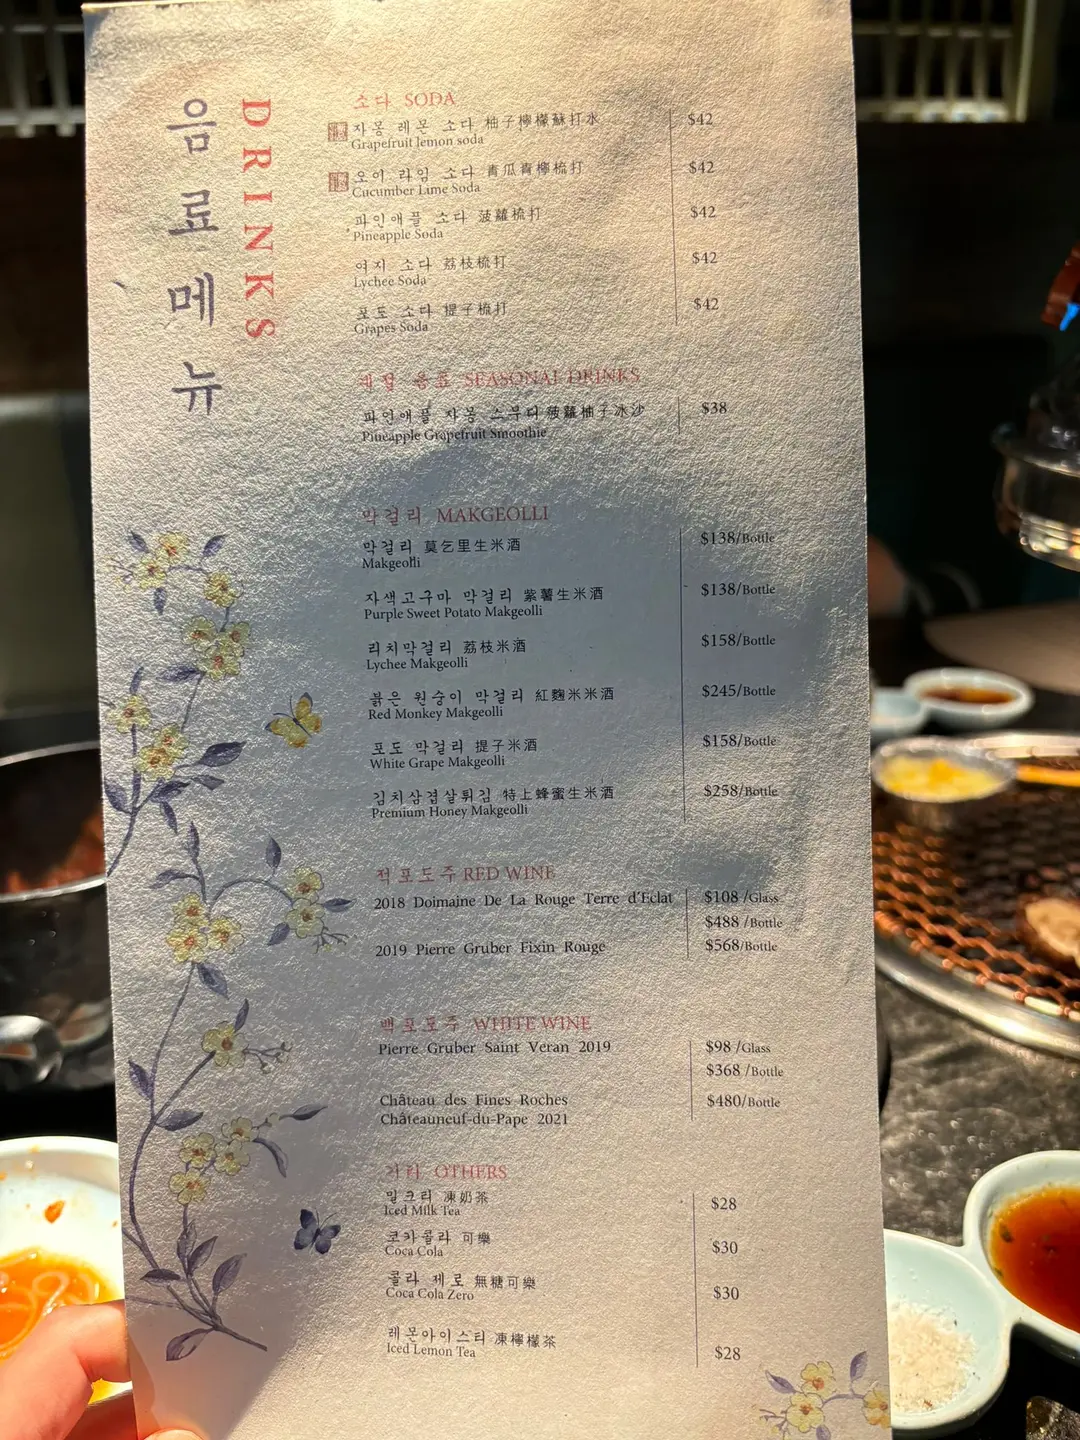 음료메뉴
DRINKS
소다 SODA
자몽 레몬 소다 柚子檸檬蘇打水 $42
Grapefruit lemon soda
오이 라임 소다 青瓜青檸梳打 $42
Cucumber Lime Soda
파인애플 소다 菠蘿梳打 $42
Pineapple Soda
여지 소다 荔枝梳打 $42
Lychee Soda
포도 소다 提子梳打 $42
Grapes Soda
계절 음료 SEASONAL DRINKS
파인애플 자몽 스무디 菠蘿柚子冰沙 $38
Pineapple Grapefruit Smoothie
막걸리 MAKGEOLLI
막걸리 莫乞里生米酒 $138/Bottle
Makgeolli
자색고구마 막걸리 紫薯生米酒 $138/Bottle
Purple Sweet Potato Makgeolli
리치막걸리 荔枝米酒 $158/Bottle
Lychee Makgeolli
붉은 원숭이 막걸리 紅麴米米酒 $245/Bottle
Red Monkey Makgeolli
포도 막걸리 提子米酒 $158/Bottle
White Grape Makgeolli
김치삼겹살튀김 特上蜂蜜生米酒 $258/Bottle
Premium Honey Makgeolli
적포도주 RED WINE
2018 Doimaine De La Rouge Terre d'Eclat $108 /Glass
$488 /Bottle
2019 Pierre Gruber Fixin Rouge $568/Bottle
백포포주 WHITE WINE
Pierre Gruber Saint Veran 2019 $98 /Glass
$368 /Bottle
Château des Fines Roches $480/Bottle
Châteauneuf-du-Pape 2021
기타 OTHERS
밀크티 凍奶茶 $28
Iced Milk Tea
코카콜라 可樂 $30
Coca Cola
콜라 제로 無糖可樂 $30
Coca Cola Zero
레몬아이스티 凍檸檬茶 $28
Iced Lemon Tea